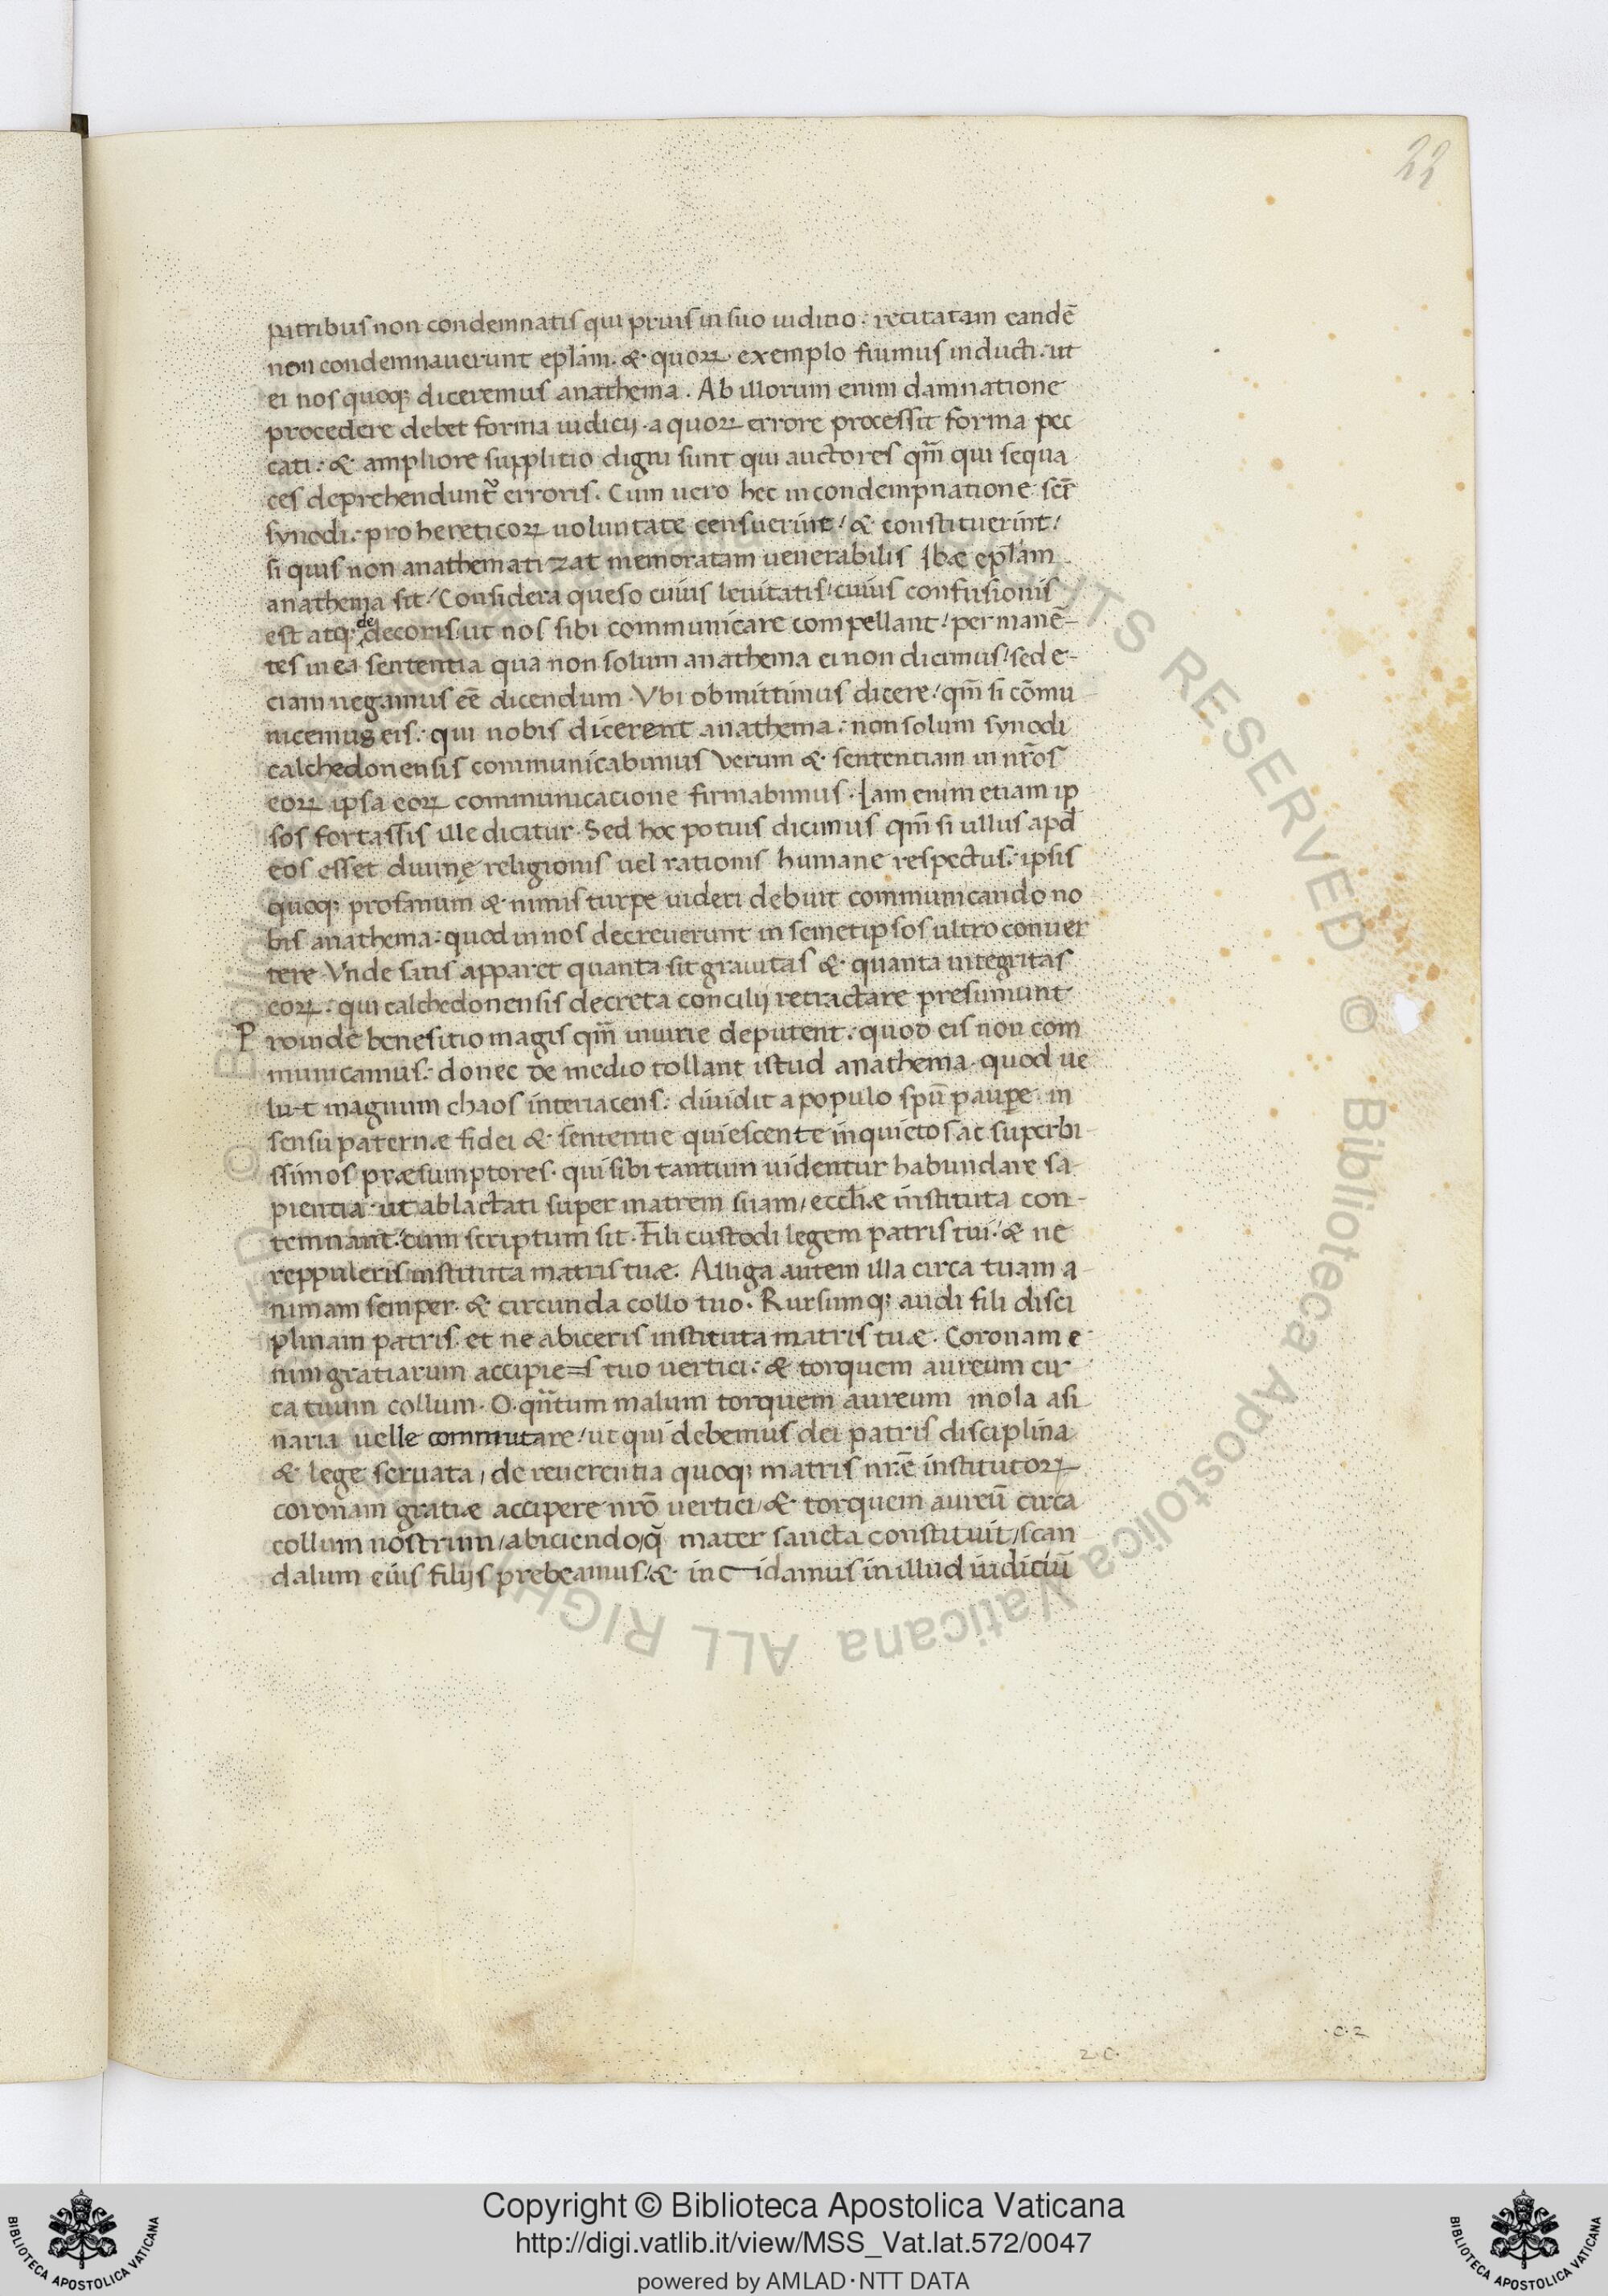 22
patribus non condemnatis qui prius in suo iuditio : recitatam eandē
non condemnauerunt eplam . & quoꝝ exemplo fuimus inducti . ut
ei nos quoqꝫ diceremus anathema . Ab illorum enim damnatione
procedere debet forma iudicij . a quoꝝ errore processit forma pec
cati : & ampliore supplitio digni sunt qui auctores qm̄ qui sequa
ces deprehendunt᷑ erroris . Cum uero hec in condempnatione scē
synodi : pro hereticoꝝ uoluntate censuerint / & constituerint /
si quis non anathematizat memoratam uenerabilis Ibæ eplam
anathema sit / Considera queso cuius leuitatis / cuius confusionis
est atqꝫ dedecoris / ut nos sibi communicare compellant / permanē-
tes in ea sententia qua non solum anathema ei non dicimus / sed e-
ciam negamus eē dicendum . Vbi obmittimus dicere / qm̄ si cōmu
nicemus eis : qui nobis dicerent anathema : non solum synodi
calchedonensis communicabimus verum & sententiam in nr̄os
eoꝝ ipsa eoꝝ communicatione firmabimus . Iam enim etiam ip
sos fortassis ille dicitur . Sed hoc potius dicimus qm̄ si ullus apd
eos esset diuinę religionis uel rationis humane respectus : ipsis
quoqꝫ profanum & nimis turpe uideri debuit communicando no
bis anathema : quod in nos decreuerunt in semetipsos ultro conuer
tere . Vnde satis apparet quanta sit grauitas & quanta integritas
eoꝝ : qui calchedonensis decreta concilij retractare presumunt
Proinde benefitio magis qm̄ iniurie deputent : quod eis non com
municamus : donec de medio tollant istud anathema . quod ue
lut magnum chaos interiacens : diuidit a populo spū paupe in
sensu paternæ fidei & sententie quiescente inquietos ac superbi-
ssimos præsumptores . qui sibi tantum uidentur habundare sa-
pientia . ut ablactati super matrem suam / eccliæ instituta con-
temnant : cum scriptum sit . Fili custodi legem patris tui / & ne
reppuleris instituta matris tuæ . Alliga autem illa circa tuam a-
nimam semper . & circunda collo tuo . Rursumqꝫ audi fili disci
plinam patris . et ne abiceris instituta matris tuæ . Coronam e-
nim gratiarum accipies tuo uertici : & torquem aureum cir
ca tuum collum . O qn̄tum malum torquem aureum mola asi
naria uelle commutare / ut qui debemus dei patris disciplina
& lege seruata , de reuerentia quoqꝫ matris nr̄e institutoꝝ
coronam gratiæ accipere nrō uertici / & torquem aureū circa
collum nostrum / abiciendo / q̄ mater sancta constituit / scan
dalum eius filijs prebeamus / & incidamus in illud iudiciū
.c.2
2.c.
© Biblioteca Apostolica Vaticana ALL RIGHTS RESERVED
Copyright © Biblioteca Apostolica Vaticana
http://digi.vatlib.it/view/MSS_Vat.lat.572/0047
powered by AMLAD·NTT DATA
BIBLIOTECA APOSTOLICA VATICANA
BIBLIOTECA APOSTOLICA VATICANA